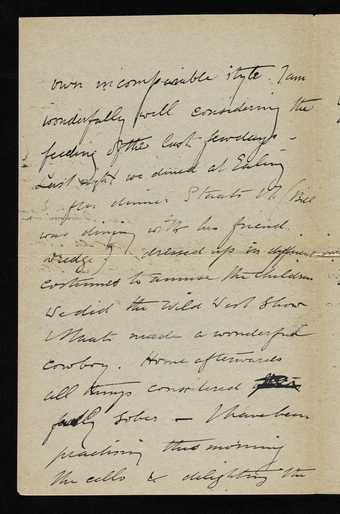 own incomparable style. I am
wonderfully well considering the
feeding of the last few days -
Last night we dined at Ealing
after dinner Straits & I (Bill
was dining with his friend
) dressed up in different
costumes to amuse the children
We did the Wild West Show
made a wonderful
cowboy. Home afterwards
all things considered
fully sober - I have been
practising this morning
the cello & delighting the